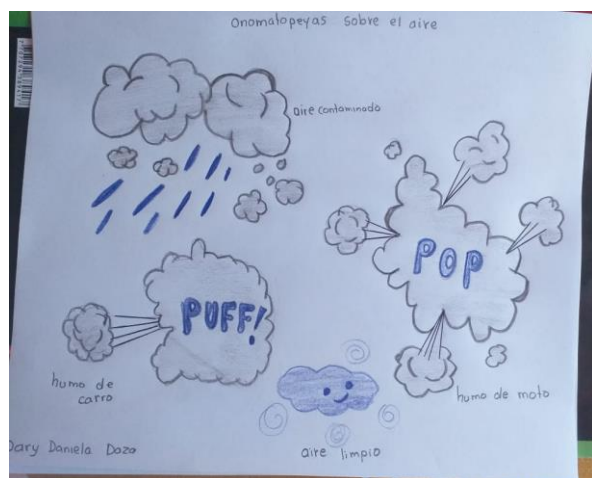 Onomatopeyas sobre el aire
aire contaminado
POP
PUFF!
humo de
carro
humo de moto
aire limpio
Dary Daniela Daza